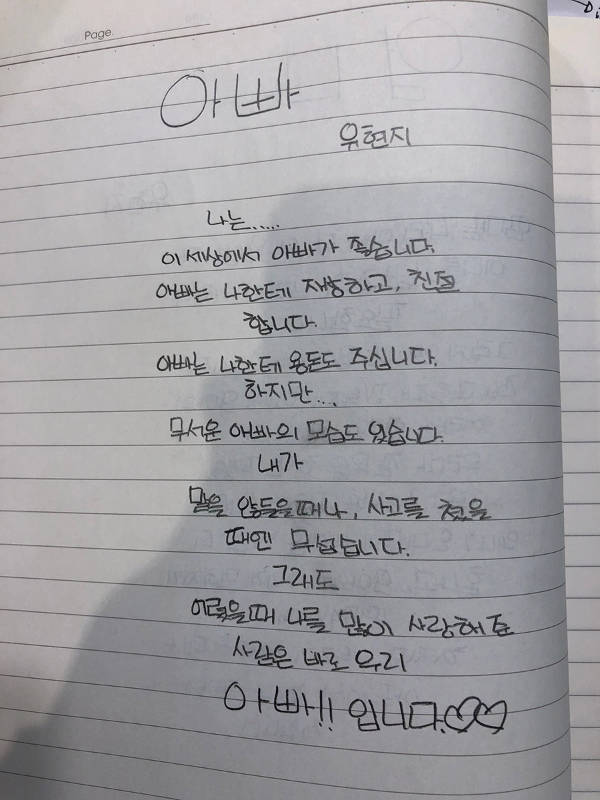 Page.
아빠
유현지
나는.....
이 세상에서 아빠가 좋습니다.
아빠는 나한테 자상하고, 친절
합니다.
아빠는 나한테 용돈도 주십니다.
하지만...
무서운 아빠의 모습도 있습니다.
내가
말을 않들을때나, 사고를 쳤을
때엔 무섭습니다.
그래도
어렸을때 나를 많이 사랑해준
사람은 바로 우리
아빠!! 입니다.♡♡